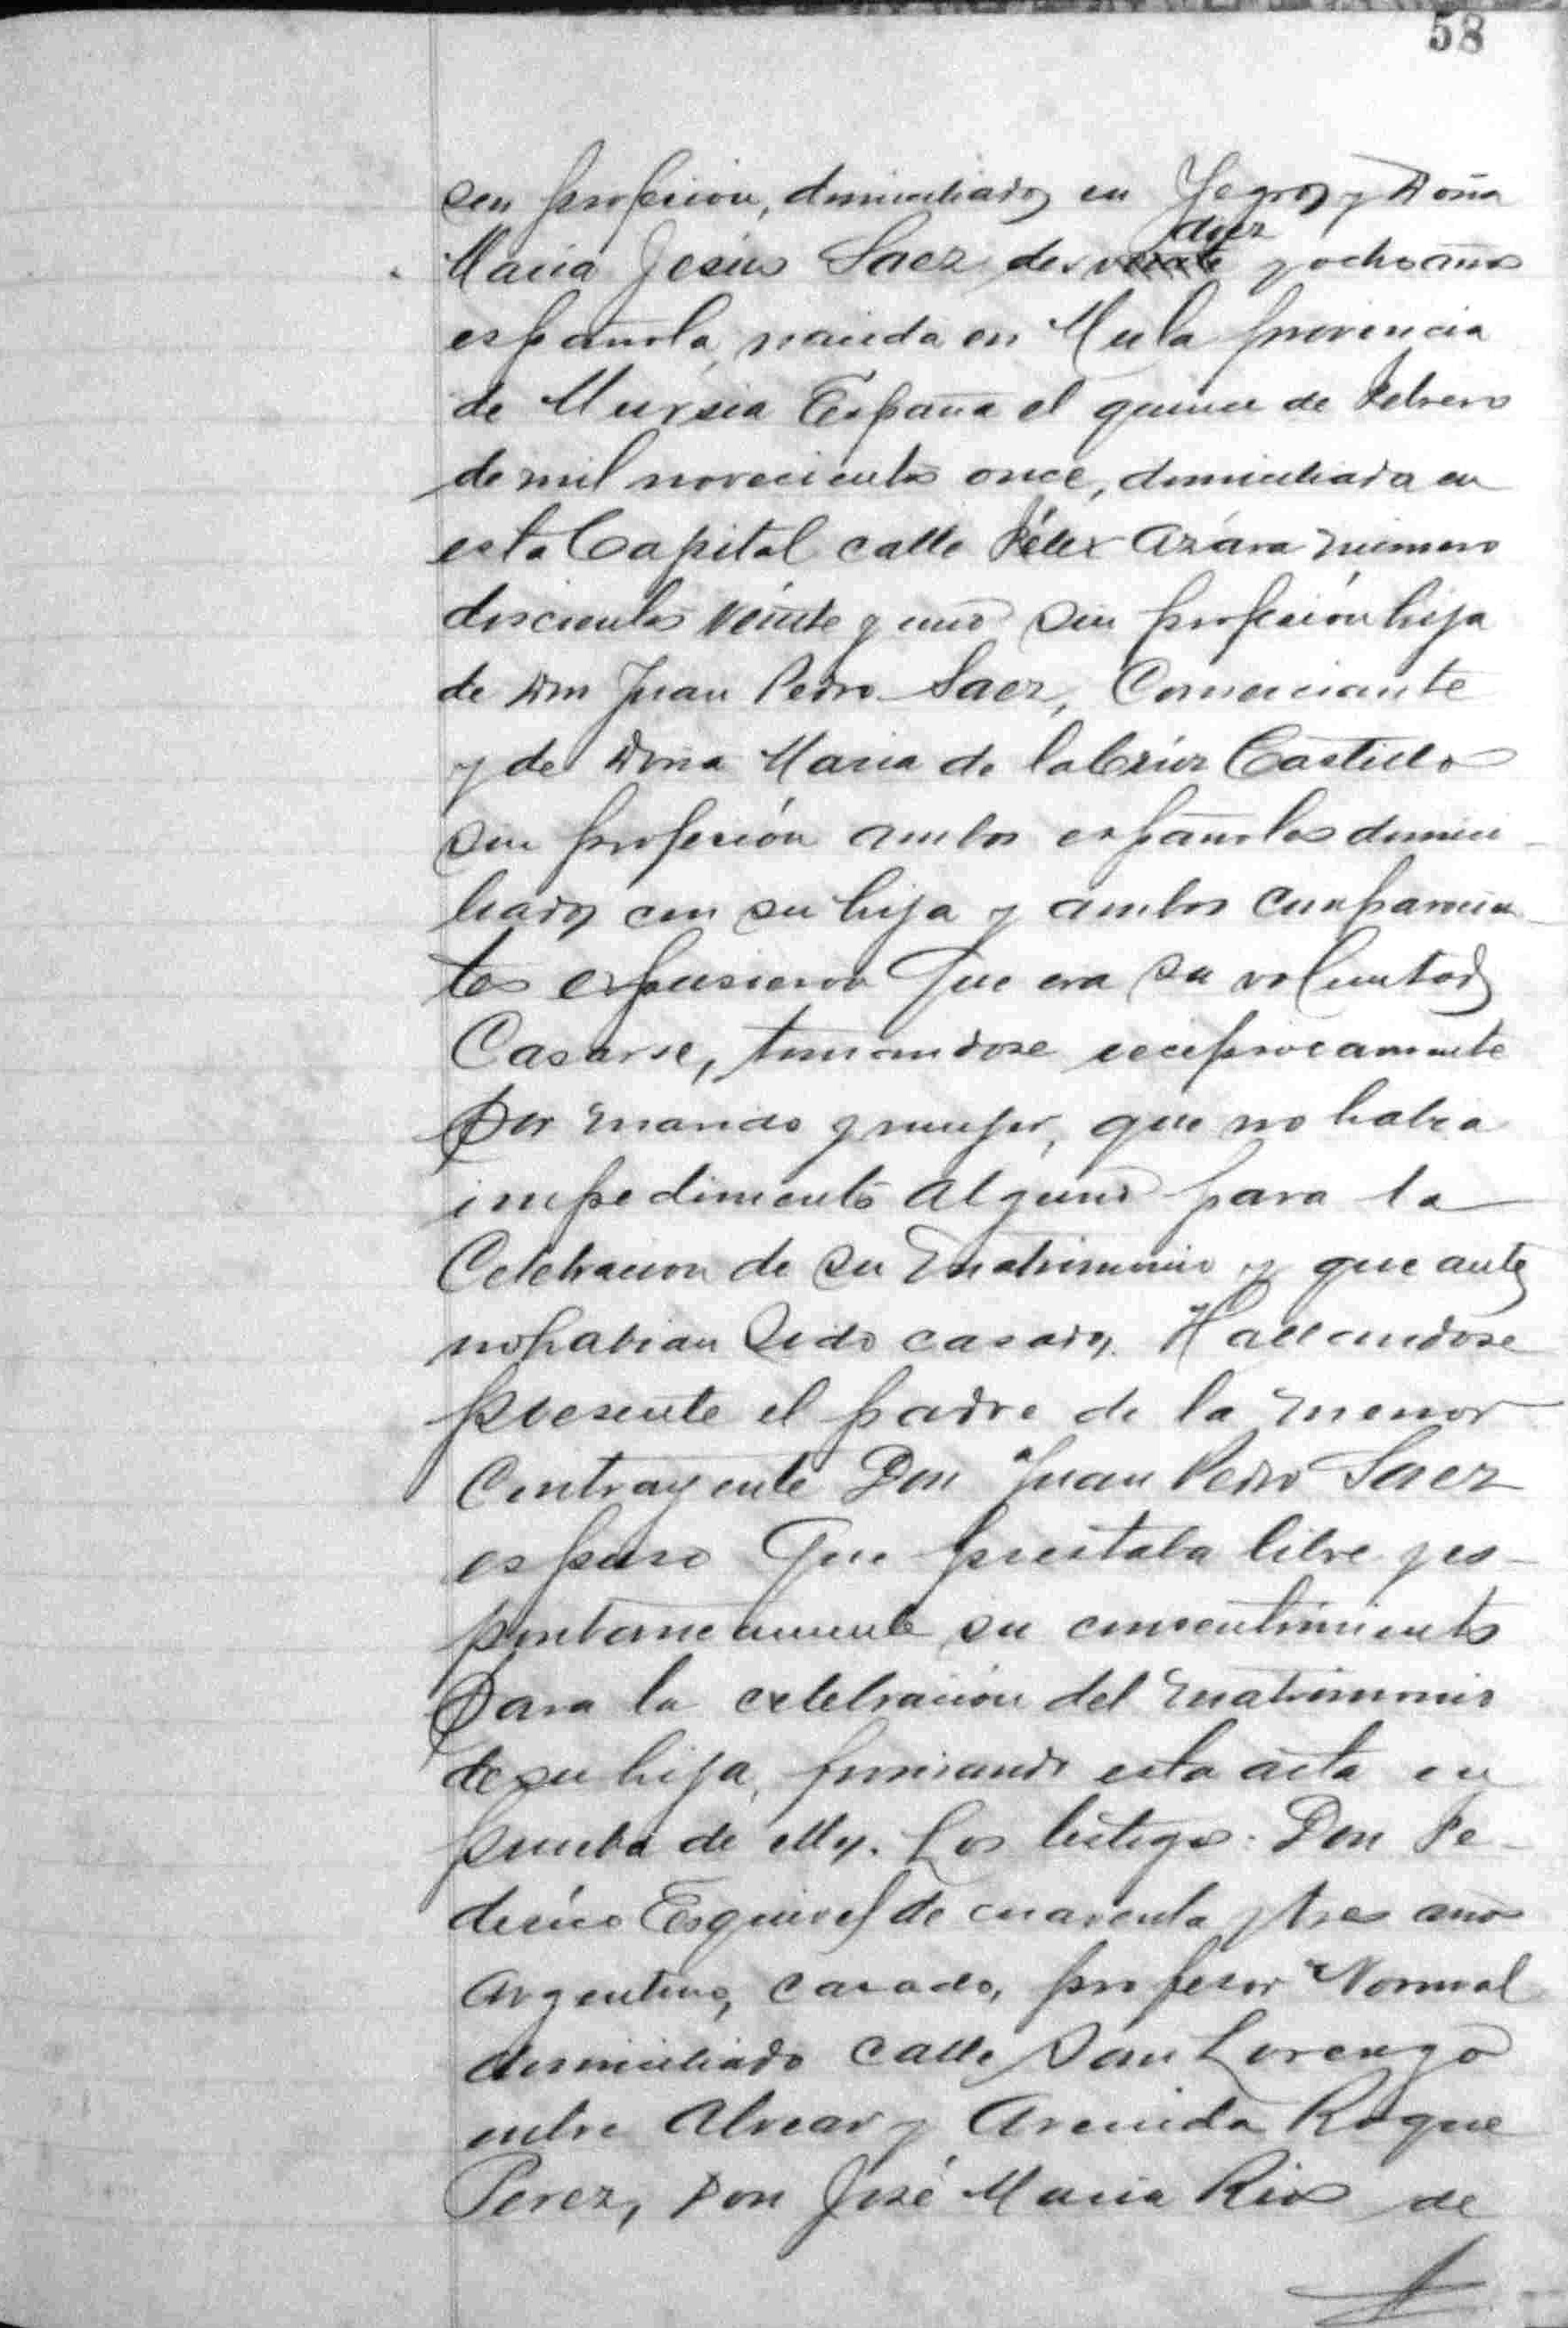 58
sin profesion, domiciliados en Yegros y Doña
diez
Maria Jesús Saez de veinte y ocho años
española, nacida en Mula provincia
de Mursia España el quince de Febrero
de mil novecientos once, domiciliada en
esta Capital calle Félix Azára número
doscientos veinte y uno sin profesión hija
de Don Juan Pedro Saez, Comerciante
y de Doña Maria de la Crúz Castillo
sin profesión ambos españoles domici-
liados con su hija y ambos comparecien-
tes expusieron Que era su voluntad
Casarse, tomandose reciprocamente
por marido y mujer, que no habia
impedimento alguno para la
Celebracion de su matrimonio y que antes
no habian sido casados. Hallandose
presente el padre de la menor
Contrayente Don Juan Pedro Saez
espuso Que prestaba libre y es-
pontaneamente su consentimiento
para la celebración del matrimonio
de su hija, firmando esta acta en
prueba de ello. Los testigos: Don Fe-
derico Esquivel de cuarenta y tres años
Argentino, casado, profesor Normal
domiciliado calle San Lorenzo
entre Alvear y Avenida Roque
Perez, Don José Maria Rios de